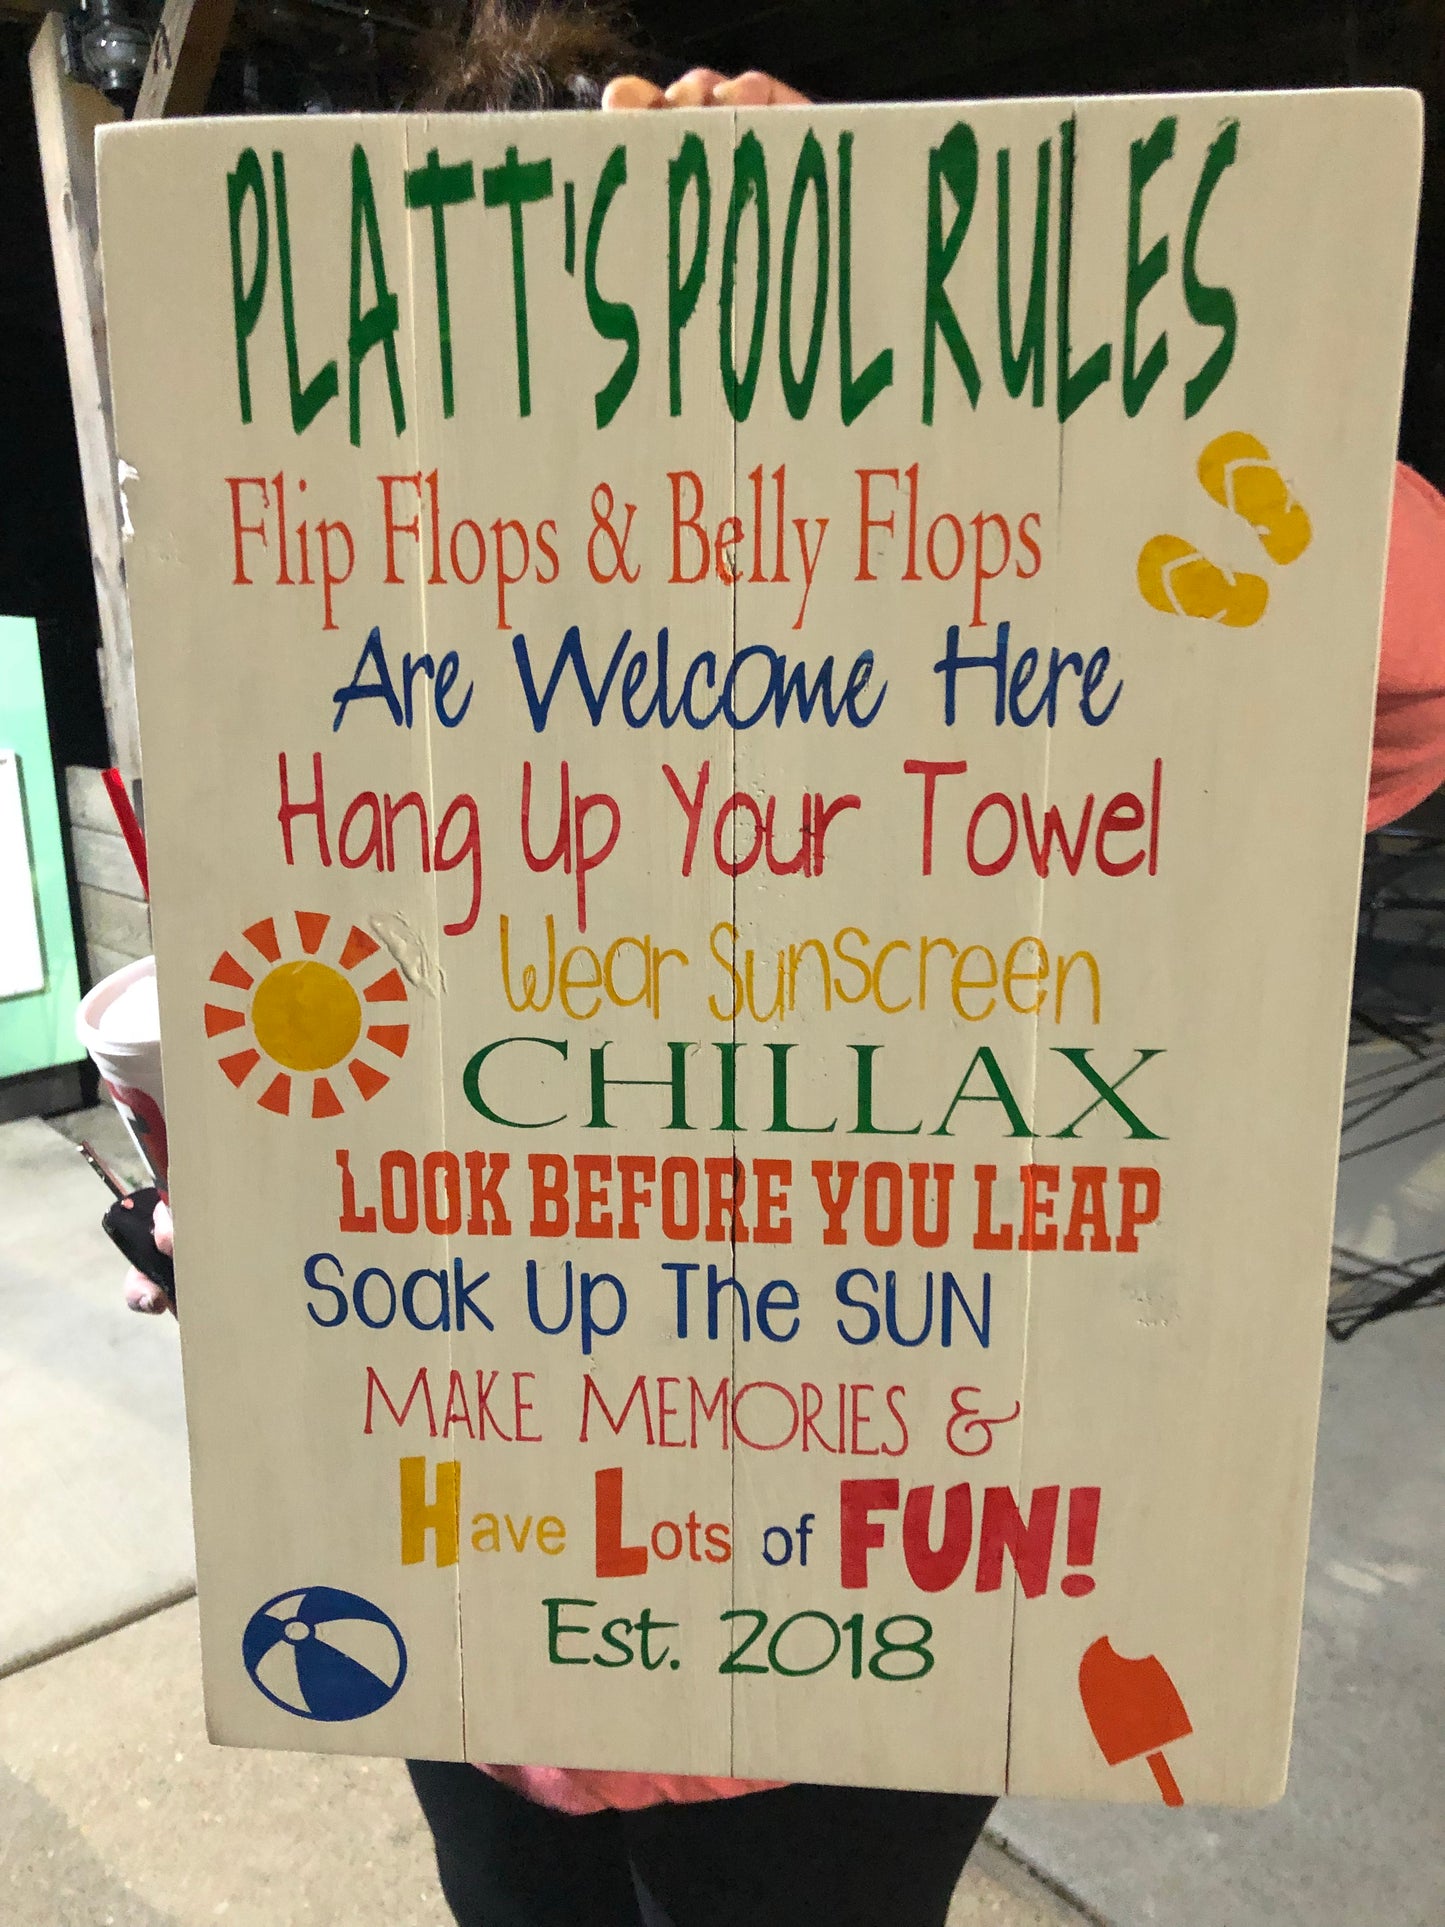 PLATT'S POOL RULES
Flip Flops & Belly Flops
Are Welcome Here
Hang Up Your Towel
Wear Sunscreen
CHILLAX
LOOK BEFORE YOU LEAP
Soak Up The SUN
MAKE MEMORIES &
Have Lots of FUN!
Est. 2018